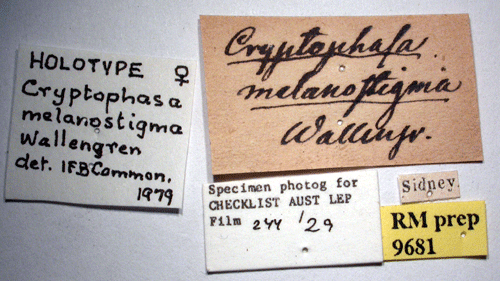 HOLOTYPE ♀
Cryptophasa
melanostigma
Wallengren
det. IFB Common,
1979
Cryptophasa
melanostigma
Wallengr.
Specimen photog for
CHECKLIST AUST LEP
Film 244 /29
Sidney.
RM prep
9681